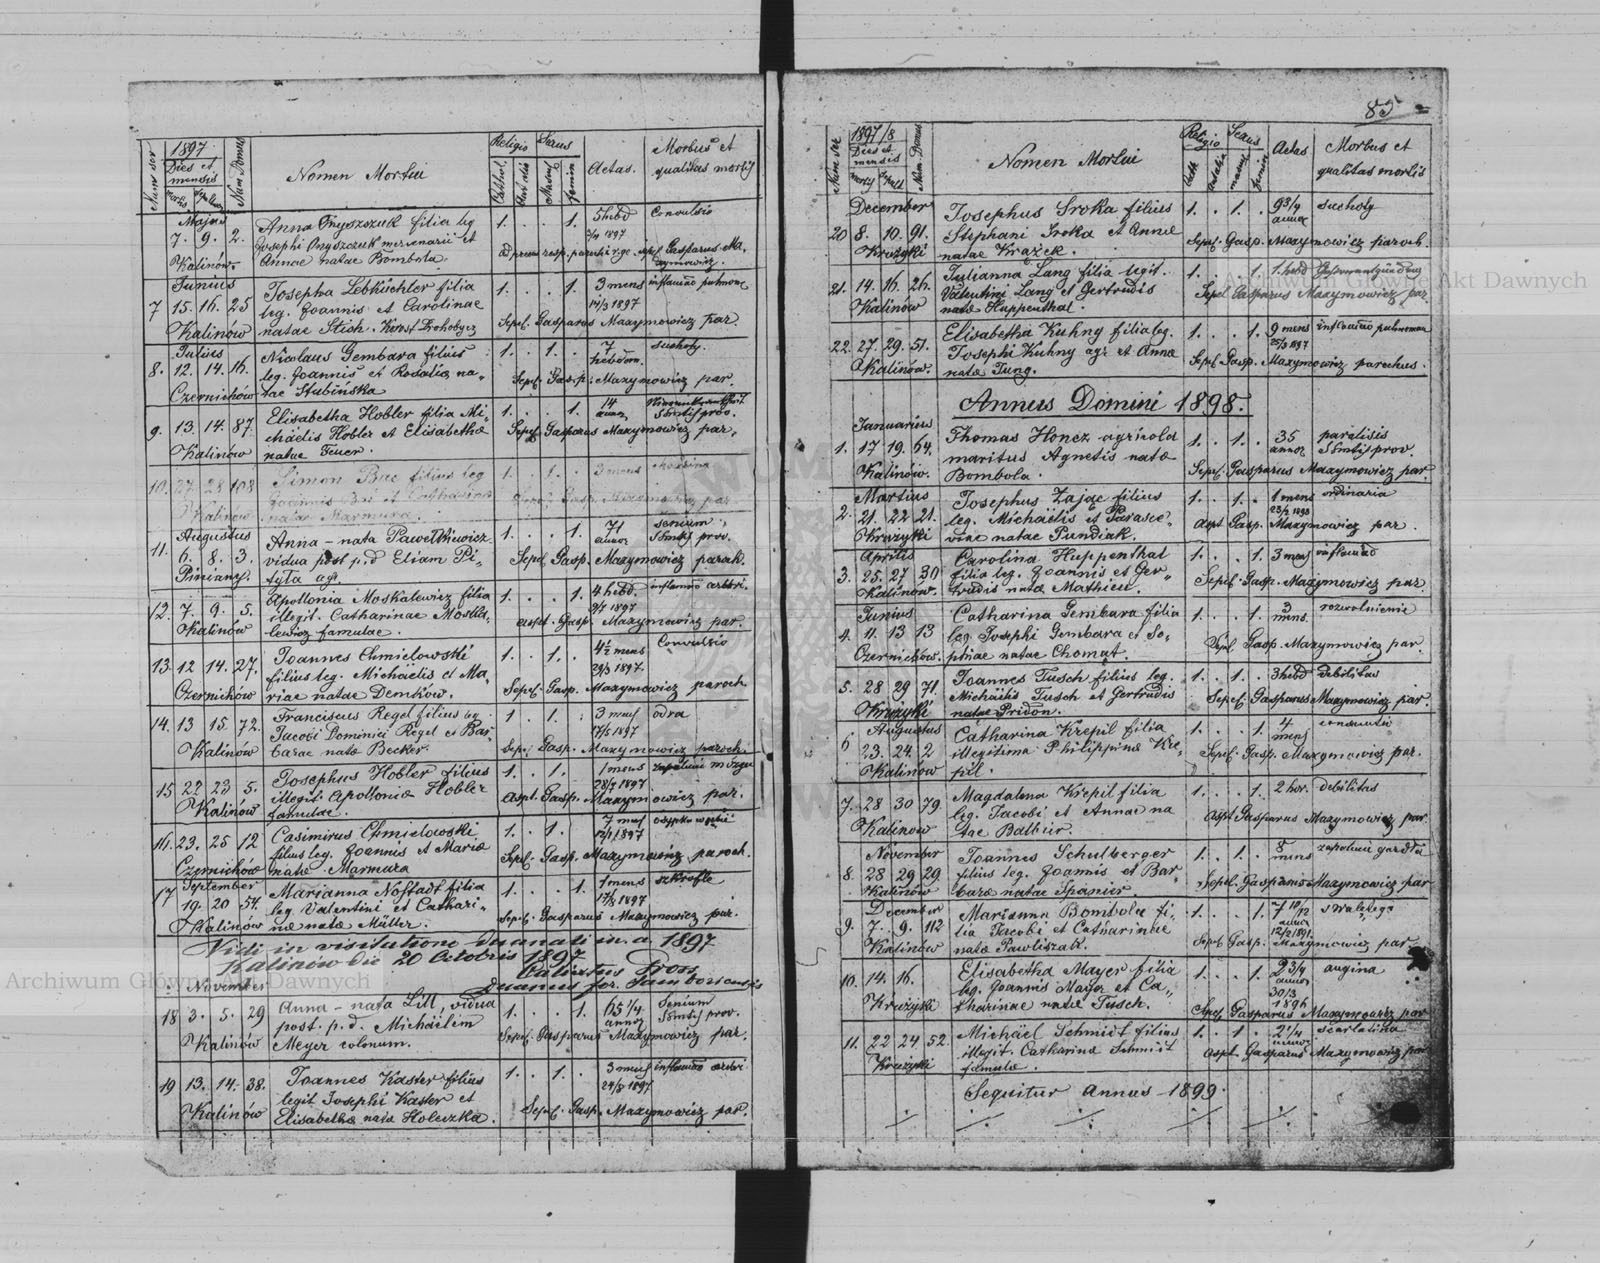 85
1897
Num ser
Dies et mensis
mortis
sepultus
Num Domus
Nomen Mortui
Religio
Cathol.
Aut alia
Sexus
Mascul
femin
Aetas.
Morbus et
qualitas mortis
Majus
7. 9. 2. Anna Onyszczuk filia leg 1. . . 1. 5 hebd Convulsio
Josephi Onyszczuk mercenarii et
Kalinów. Annae natae Bombola.
Junius
7 15. 16. 25 Josepha Lebküchler filia 1. . . 1. 3 mens inflamāo pulmonē
leg. Joannis et Carolinae 1897
Kalinów natae Stich. Sepel. Gasparus Maxymowicz par.
Julius
8. 12. 14. 16. Nicolaus Gembara filius 1. . 1. . 7 hebdom. suchoty.
leg. Joannis et Rosaliæ na-
Czernichów tae Stubińska Sepel. Gasp. Maxymowicz par.
9. 13. 14. 87. Elisabetha Hobler filia Mi- 1. . . 1. 14 annor
chäelis Hobler et Elisabethæ Sepel. Gasparus Maxymowicz par.
Kalinów natae Feuer.
10. 27. 28 108 Simon Bac filius leg 1. . 1. . 3 mens
Joannis Bac et Catharina
Kalinów natae Marmura. Sepel. Gasp. Maxymowicz par
Augustus
11. 6. 8. 3. Anna - nata Pawelkiewicz 1. . . 1. 71 annor senium
vidua post p.d Eliam Pi- Sepel Gasp. Maxymowicz paroh.
Piniany. tyła agr.
12. 7. 9. 5. Apollonia Moskalewicz filia 1. . . 1. 4 hebd.
illegit. Catharinae Moska- 1897
Kalinów lewicz famulae. aspt. Gasp. Maxymowicz par
13. 12 14. 27. Joannes Chmielowski 1. . 1. . 4½ mens Convulsio
filius leg. Michäelis et Ma- 1897
Czernichów riae natae Demków. Sepel. Gasp. Maxymowicz paroch
14. 13 15 72. Franciscus Regel filius leg 1. . 1. . 3 mens odra
Jacobi Dominici Regel et Bar- 1897
Kalinów barae natæ Becker. Sepel. Gasp. Maxymowicz paroch.
15 22 23 5. Josephus Hobler filius 1. . 1. 1 mens zapaleni mózgu
illegit. Apolloniæ Hobler 1897
Kalinów famulae. aspt. Gasp. Maxymowicz par.
16. 23. 25 12 Casimirus Chmielowski 1. . 1. 7 mens
filius leg. Joannis et Mariæ 1897
Czernichów natæ Marmura Sepel. Gasp. Maxymowicz paroch.
September
17 19. 20 54. Marianna Nofstadt filia 1. . . 1. 1 mens szkrofle
leg. Valentini et Cathari- 1897
Kalinów næ natæ Müller. Sepel. Gasparus Maxymowicz par.
Vidi in visitatione Decanali in. a. 1897
Kalinów die 20 Octobris 1897
Calixtus
Decanus for. Samboriensis
November
18 3. 5. 29 Anna - nata Litt vidua 1. . . 1. 65 1/4 annor Senium
post. p. d. Michäelem
Kalinów Meyer colonum. Sepel. Gasparus Maxymowicz par.
19 13. 14. 38. Joannes Kaster filius 1. . 1. . 3 mens
legit Josephi Kaster et 1897
Kalinów Elisabethæ nata Holeczka. Sepel. Gasp. Maxymowicz par.
1897/8
Num ser
Dies et mensis
mortis
sepult
Num Domus
Nomen Mortui
Religio
Cath
aut alia
Sexus
mascul
femin
Aetas
Morbus et
qualitas mortis
December
20 8. 10. 91. Josephus Sroka filius 1. . 1. . 9 3/4 annor suchoty
Stephani Sroka et Annæ
Krużyki natae Krążek. Sepel. Gasp. Maxymowicz paroch.
21. 14. 16. 26. Julianna Lang filia legit. 1. . . 1. 1. hebd
Valentini Lang et Gertrudis
Kalinów natæ Huppenthal. Sepel Gasparus Maxymowicz par.
22. 27. 29. 51. Elisabetha Kuhny filia leg. 1. . . 1. 9 mens inflamāo pulmonum
Josephi Kuhny agr et Annæ 1897
Kalinów. natæ Jung. Sepel Gasp. Maxymowicz parochus.
Annus Domini 1898.
Januarius
1. 17 19. 64. Thomas Honcz agricola 1. . 1. . 35 annor paralisis
maritus Agnetis natæ
Kalinów. Bombola. Sepel. Gasparus Maxymowicz par.
Martius
2. 21. 22 21. Josephus Zając filius 1. . 1. . 1 mens ordinaria
leg. Michäelis et Parasce- 1898
Krużyki viae natae Pundiak. aspt Gasp. Maxymowicz par.
Aprilis
3. 25. 27 30 Carolina Huppenthal 1. . . 1. 3 mens inflamāo
filia leg. Joannis et Ger-
Kalinów. trudis natæ Mathieu. Sepel. Gasp. Maxymowicz par
Junius
4. 11. 13 13 Catharina Gembara filia 1. . . 1. 3 mens. rozwolnienie
leg. Josephi Gembara et So-
Czernichów. phiae natae Chomąt. Sepel Gasp. Maxymowicz par.
5. 28 29 71. Joannes Tusch filius leg. 1. . 1. . 3 hebd debilitas
Michäelis Tusch et Gertrudis
Krużyki natae Pridon. Sepel. Gasparus Maxymowicz par.
Augustus
6 23. 24. 2 Catharina Krepil filia 1. . . 1. 4 mens
illegitima Philippinæ Kre-
Kalinów pil. Sepel. Gasp. Maxymowicz par.
7. 28 30 79. Magdalena Krepil filia 1. . . 1. 2 hor. debilitas
leg. Jacobi et Annae na
Kalinów tae Balbur. aspt Gasparus Maxymowicz par
November
8. 28 29 29. Joannes Schulberger 1. . 1. . 8 mens zapaleni gardła
filius leg. Joannis et Bar-
Kalinów baræ natae Spanier. Sepel. Gasparus Maxymowicz par
December
9. 7. 9. 112 Marianna Bombola fi- 1. . . 1. 7 10/12 annor
lia Jacobi et Catharinae
Kalinów natæ Pawliszak. Sepel Gasp. Maxymowicz par
10. 14. 16. Elisabetha Mayer filia 1. . . 1. 2 3/4 annor angina
leg. Joannis Mayer et Ca- 30/3 1896
Krużyki tharinae natæ Tusch. Sepel Gasparus Maxymowicz par
11. 22 24 52. Michäel Schmidt filius 1. . 1. . 2 1/4 annor scarlatina
illegit. Catharinæ Schmidt
Krużyki famulæ. aspt. Gasparus Maxymowicz par
Sequitur Annus 1899.
Archiwum Główne Akt Dawnych
Archiwum Główne Akt Dawnych